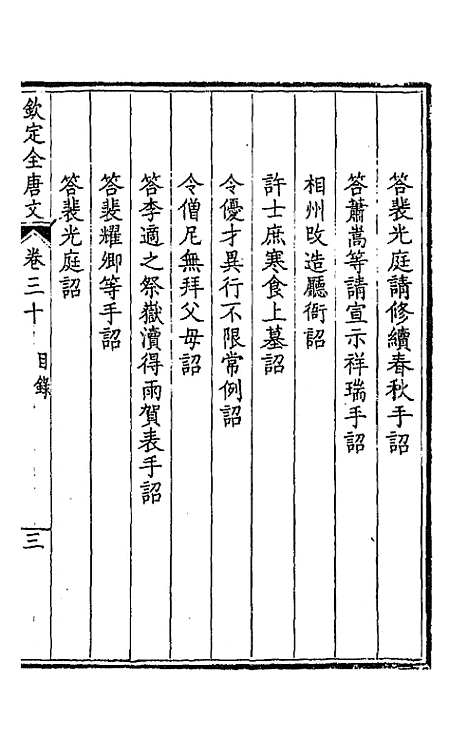 答裴光庭請修續春秋手詔
答蕭嵩等請宣示祥瑞手詔
相州改造廳衙詔
許士庶寒食上墓詔
令優才異行不限常例詔
令僧尼無拜父母詔
答李適之祭嶽瀆得雨賀表手詔
答裴耀卿等手詔
答裴光庭詔
欽定全唐文 卷三十 目錄 三